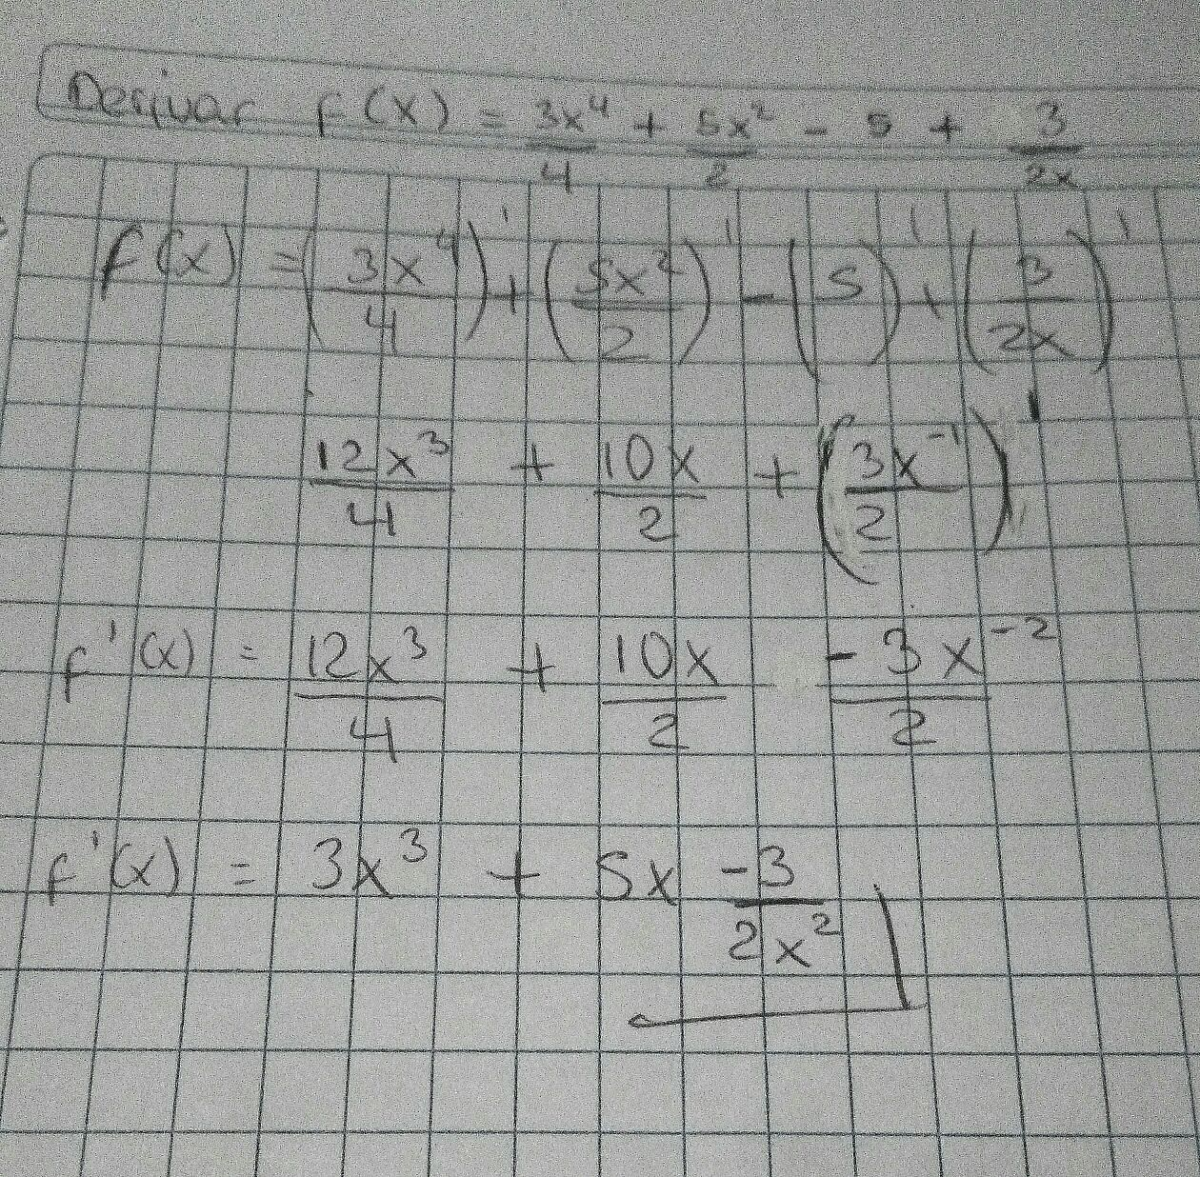 Derivar f(x) = 3x⁴/4 + 5x²/2 - 5 + 3/2x
f(x) = (3x⁴/4)' + (5x²/2)' - (5)' + (3/2x)'
12x³/4 + 10x/2 + (3x⁻¹/2)'
f'(x) = 12x³/4 + 10x/2 -3x⁻²/2
f'(x) = 3x³ + 5x -3/2x²